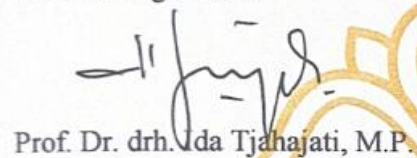 Prof. Dr. drh. Ida Tjahajati, M.P.